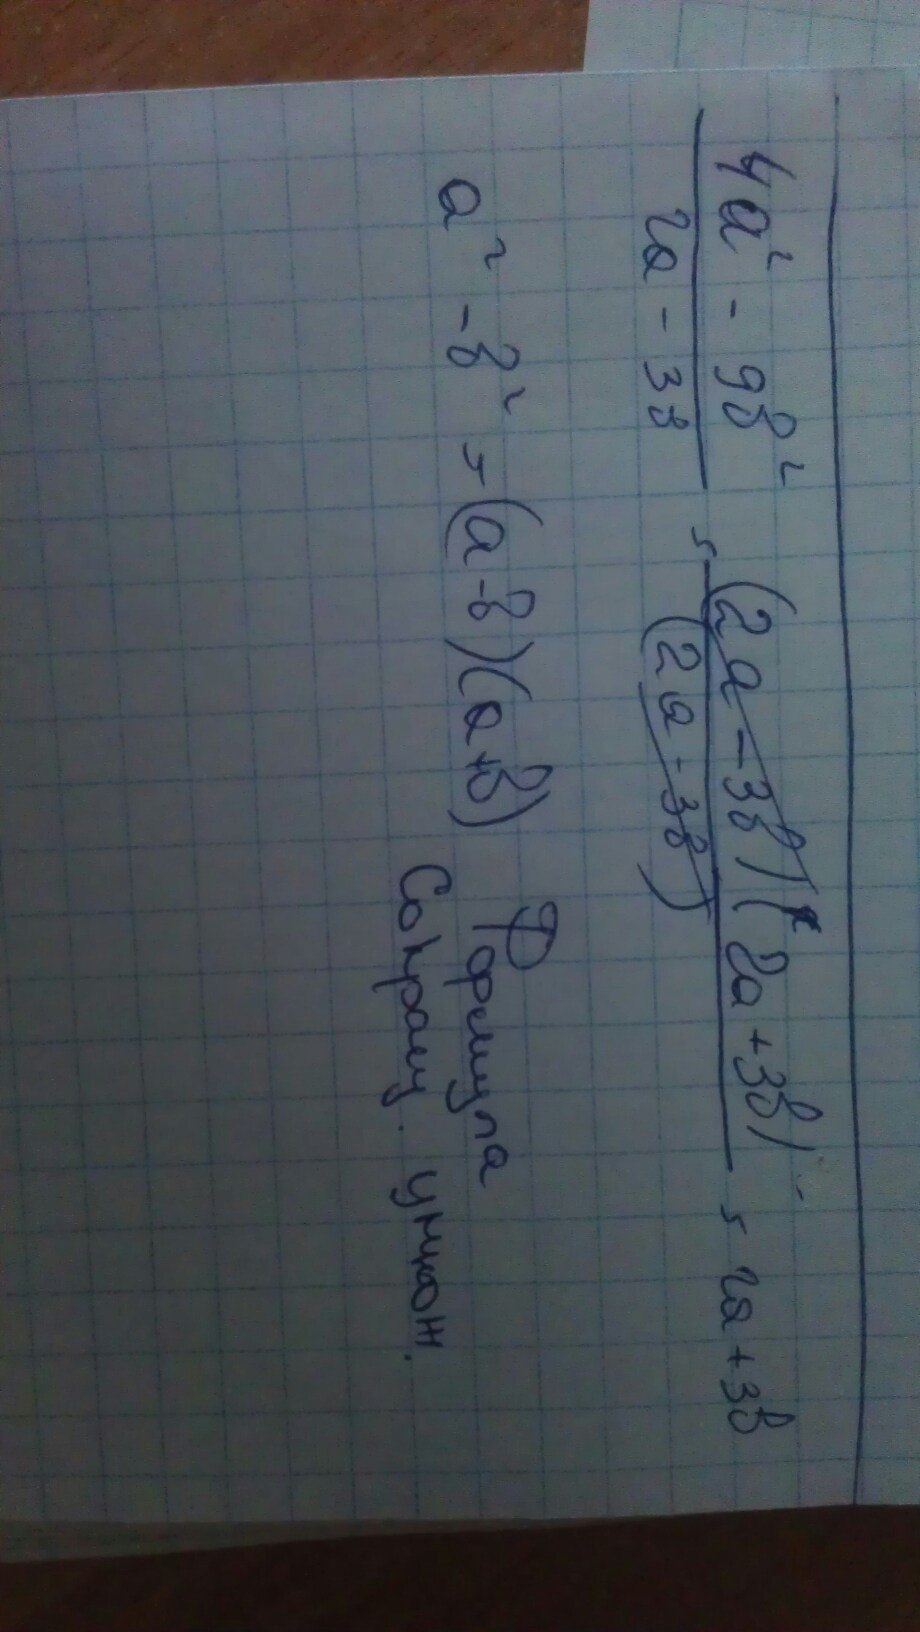 4a² - 9b² / 2a - 3b = (2a - 3b)(2a + 3b) / (2a - 3b) = 2a + 3b
a² - b² = (a - b)(a + b) Формула
Сокращ. умнож.